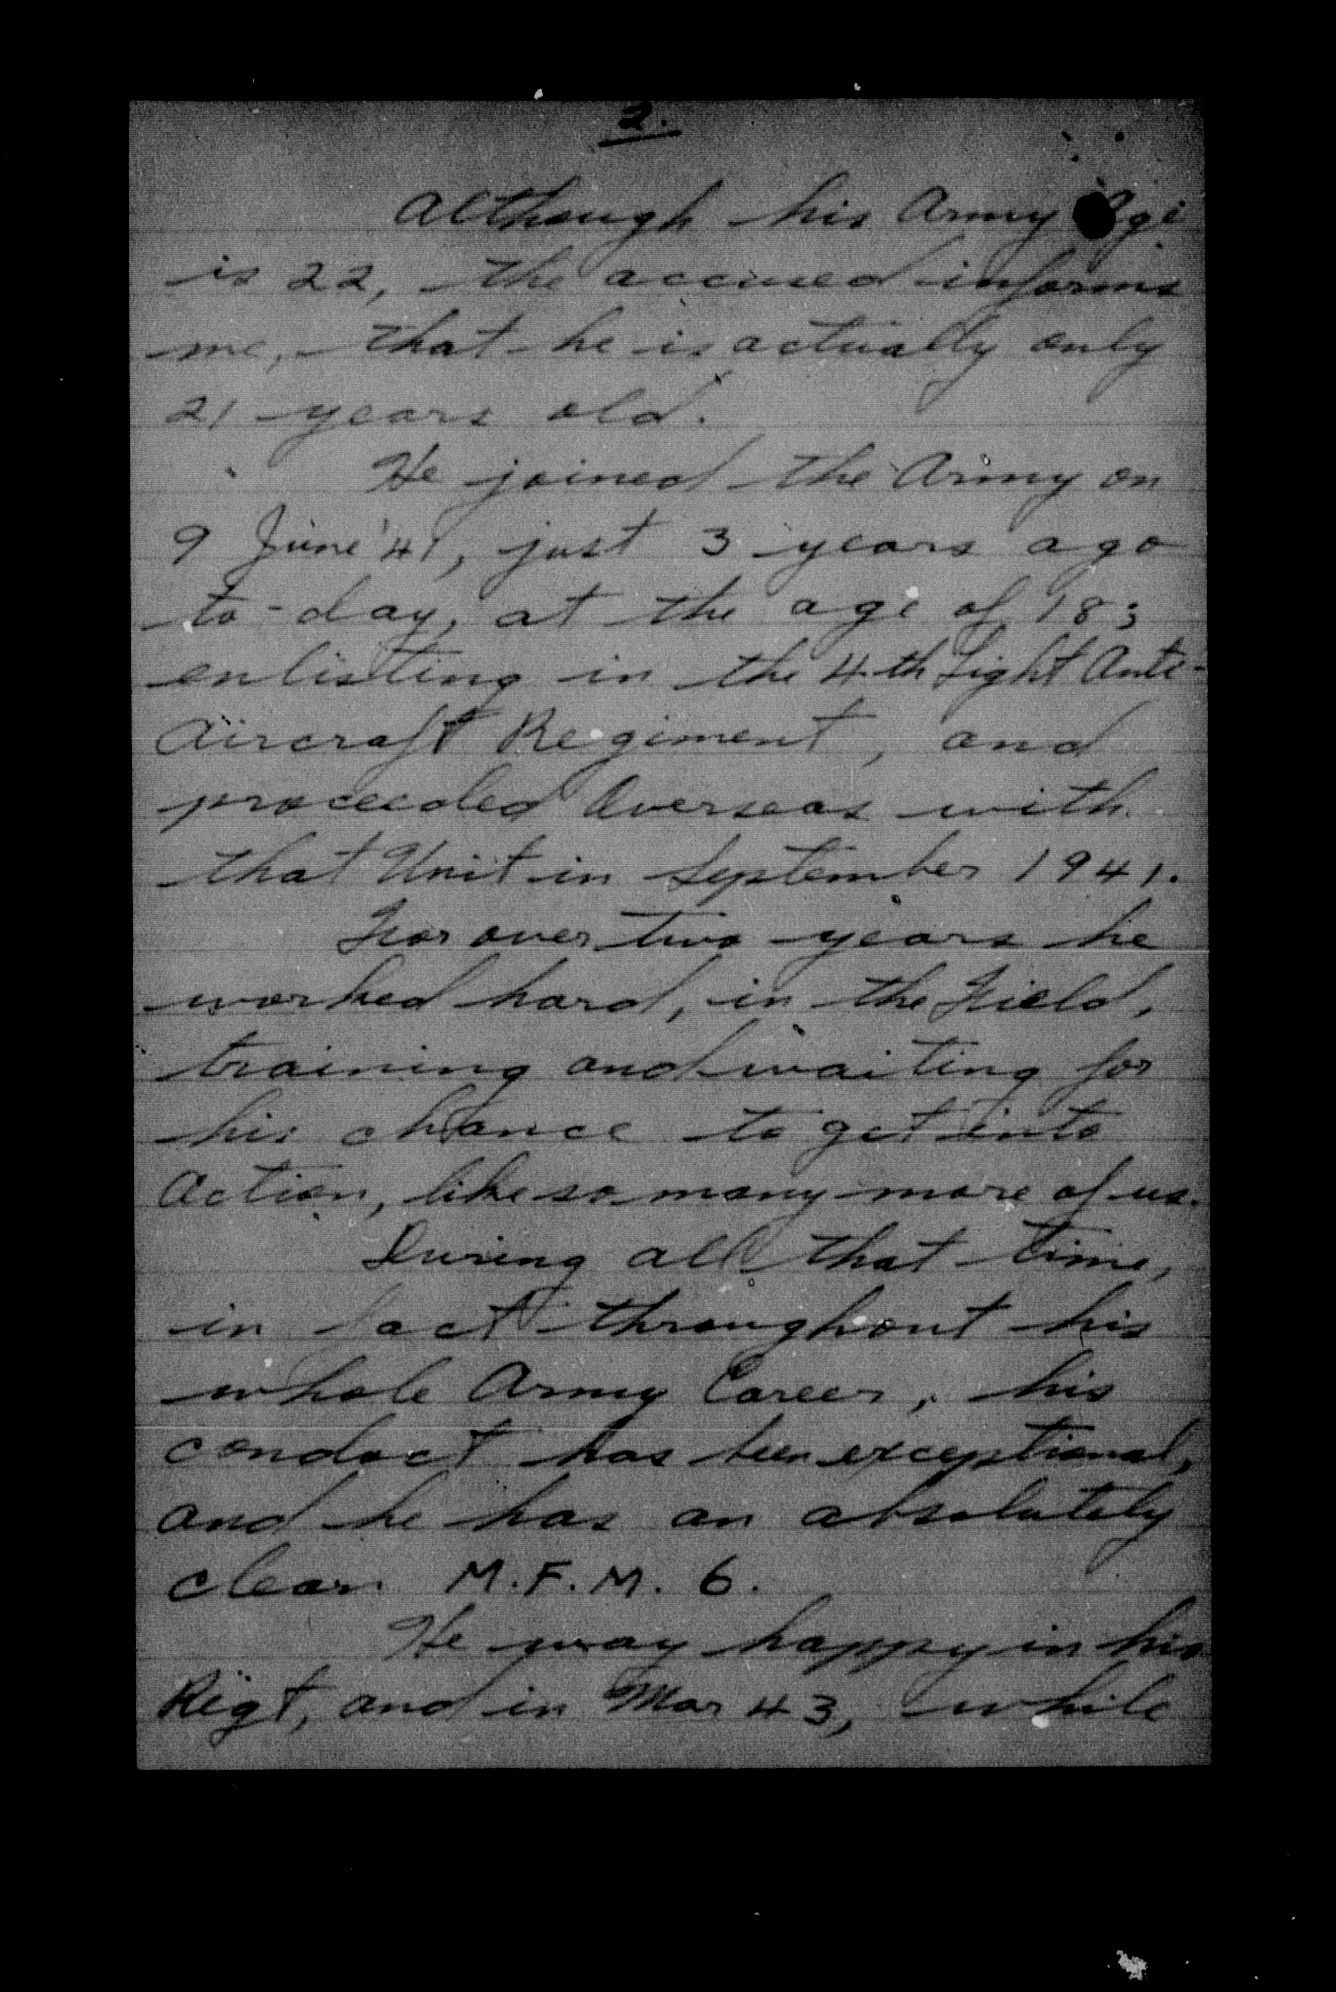 2.
Although his Army Age
is 22, the accused informs
me, that he is actually only
21 years old.
He joined the Army on
9 June '41, just 3 years ago
to-day, at the age of 18;
enlisting in the 4th Light Anti-
Aircraft Regiment, and
proceeded Overseas with
that Unit in September 1941.
For over two years he
worked hard, in the Field,
training and waiting for
his chance to get into
Action, like so many more of us.
During all that time,
in fact throughout his
whole Army Career, his
conduct has been exceptional,
and he has an absolutely
clean M.F.M. 6.
He was happy in his
Rigt, and in Mar 43, while